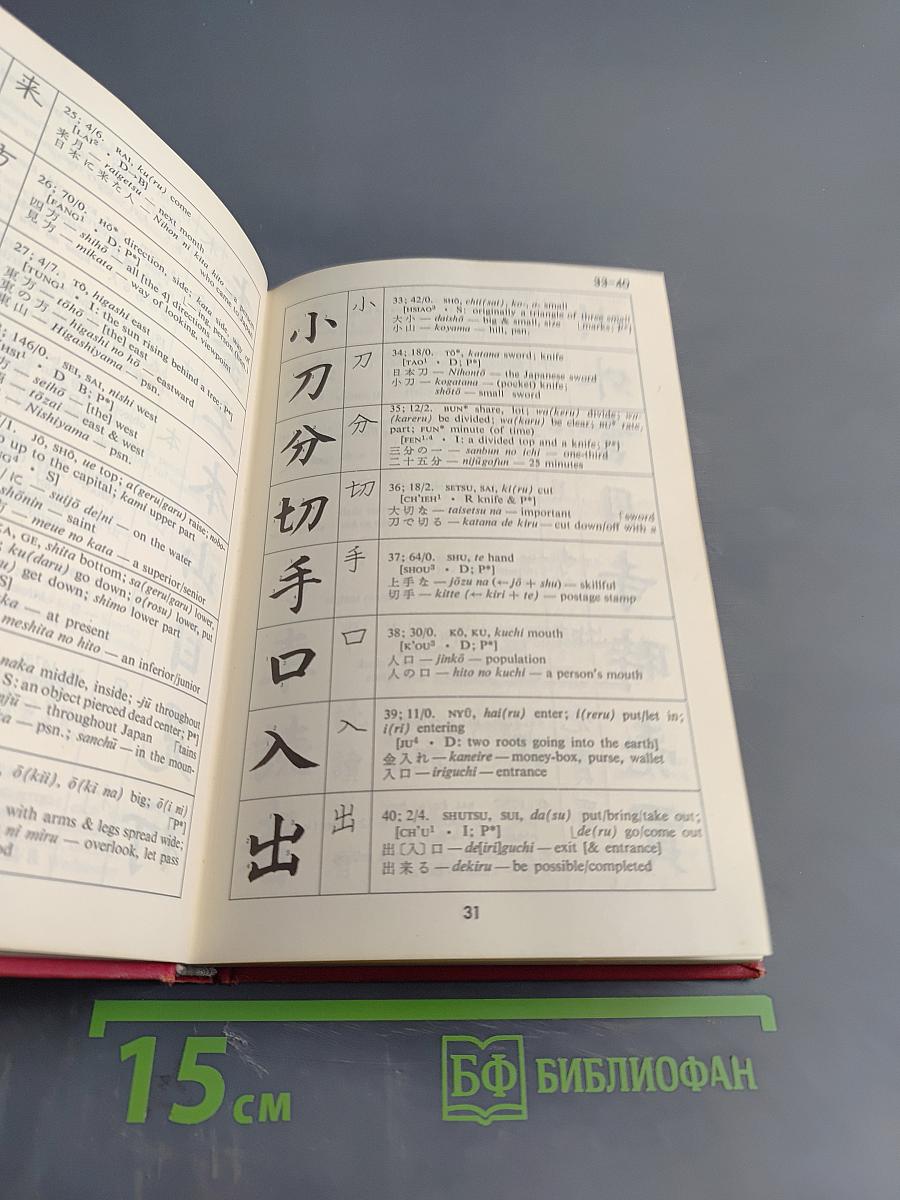 来
25; 4/6. RAI, ku(ru) come
[LAI² · D→B]
来月 — raigetsu — next month
日本に来た人 — Nihon ni kita hito — a person
who came to Japan
方
26; 70/0. HŌ* direction, side; kata side, way of
[FANG¹ · D; P*]
四方 — shihō — all [the 4] directions
見方 — mikata — way of looking, viewpoint
27; 4/7. TŌ, higashi east
[TUNG¹ · I: the sun rising behind a tree; P*]
東方 — tōhō — [the] east
東の方 — higashi no hō — eastward
東山 — Higashiyama — psn.
146/0. SEI, SAI, nishi west
D B; P*]
seihō — [the] west
tōzai — east & west
Nishiyama — psn.
JŌ, SHŌ, ue top; a(geru/garu) raise; nobo-
up to the capital; kami upper part
· S]
に — suijō de/ni — on the water
shōnin — saint
方 — meue no kata — a superior/senior
KA, GE, shita bottom; sa(geru/garu) lower,
ku(daru) go down; o(rosu) lower, put
get down; shimo lower part
S]
— at present
meshita no hito — an inferior/junior
naka middle, inside; -jū throughout
S: an object pierced dead center; P*]
— throughout Japan [tains
— psn.; sanchū — in the moun-
ō(kii), ō(ki na) big; ō(i ni)
[P*]
with arms & legs spread wide;
ni miru — overlook, let pass
33–40
小 小
33; 42/0. SHŌ, chii(sai), ko-, o- small
[HSIAO³ · S: originally a triangle of three small
大小 — daishō — big & small, size [marks; P*]
小山 — koyama — hill, psn.
刀 刀
34; 18/0. TŌ*, katana sword; knife
[TAO¹ · D; P*]
日本刀 — Nihontō — the Japanese sword
小刀 — kogatana — (pocket) knife;
shōtō — small sword
分 分
35; 12/2. BUN* share, lot; wa(keru) divide; wa-
(kareru) be divided; wa(karu) be clear; BU* rate,
part; FUN* minute (of time)
[FEN¹·⁴ · I: a divided top and a knife; P*]
三分の一 — sanbun no ichi — one-third
二十五分 — nijūgofun — 25 minutes
切 切
36; 18/2. SETSU, SAI, ki(ru) cut
[CH'IEH¹ · R knife & P*]
大切な — taisetsu na — important [sword
刀で切る — katana de kiru — cut down/off with a
手 手
37; 64/0. SHU, te hand
[SHOU³ · D; P*]
上手な — jōzu na (← jō + shu) — skillful
切手 — kitte (← kiri + te) — postage stamp
口 口
38; 30/0. KŌ, KU, kuchi mouth
[K'OU³ · D; P*]
人口 — jinkō — population
人の口 — hito no kuchi — a person's mouth
入 入
39; 11/0. NYŪ, hai(ru) enter; i(reru) put/let in;
i(ri) entering
[JU⁴ · D: two roots going into the earth]
金入れ — kaneire — money-box, purse, wallet
入口 — iriguchi — entrance
出 出
40; 2/4. SHUTSU, SUI, da(su) put/bring/take out;
[CH'U¹ · I; P*] [de(ru) go/come out
出〔入〕口 — de[iri]guchi — exit [& entrance]
出来る — dekiru — be possible/completed
31
15 см
БФ БИБЛИОФАН